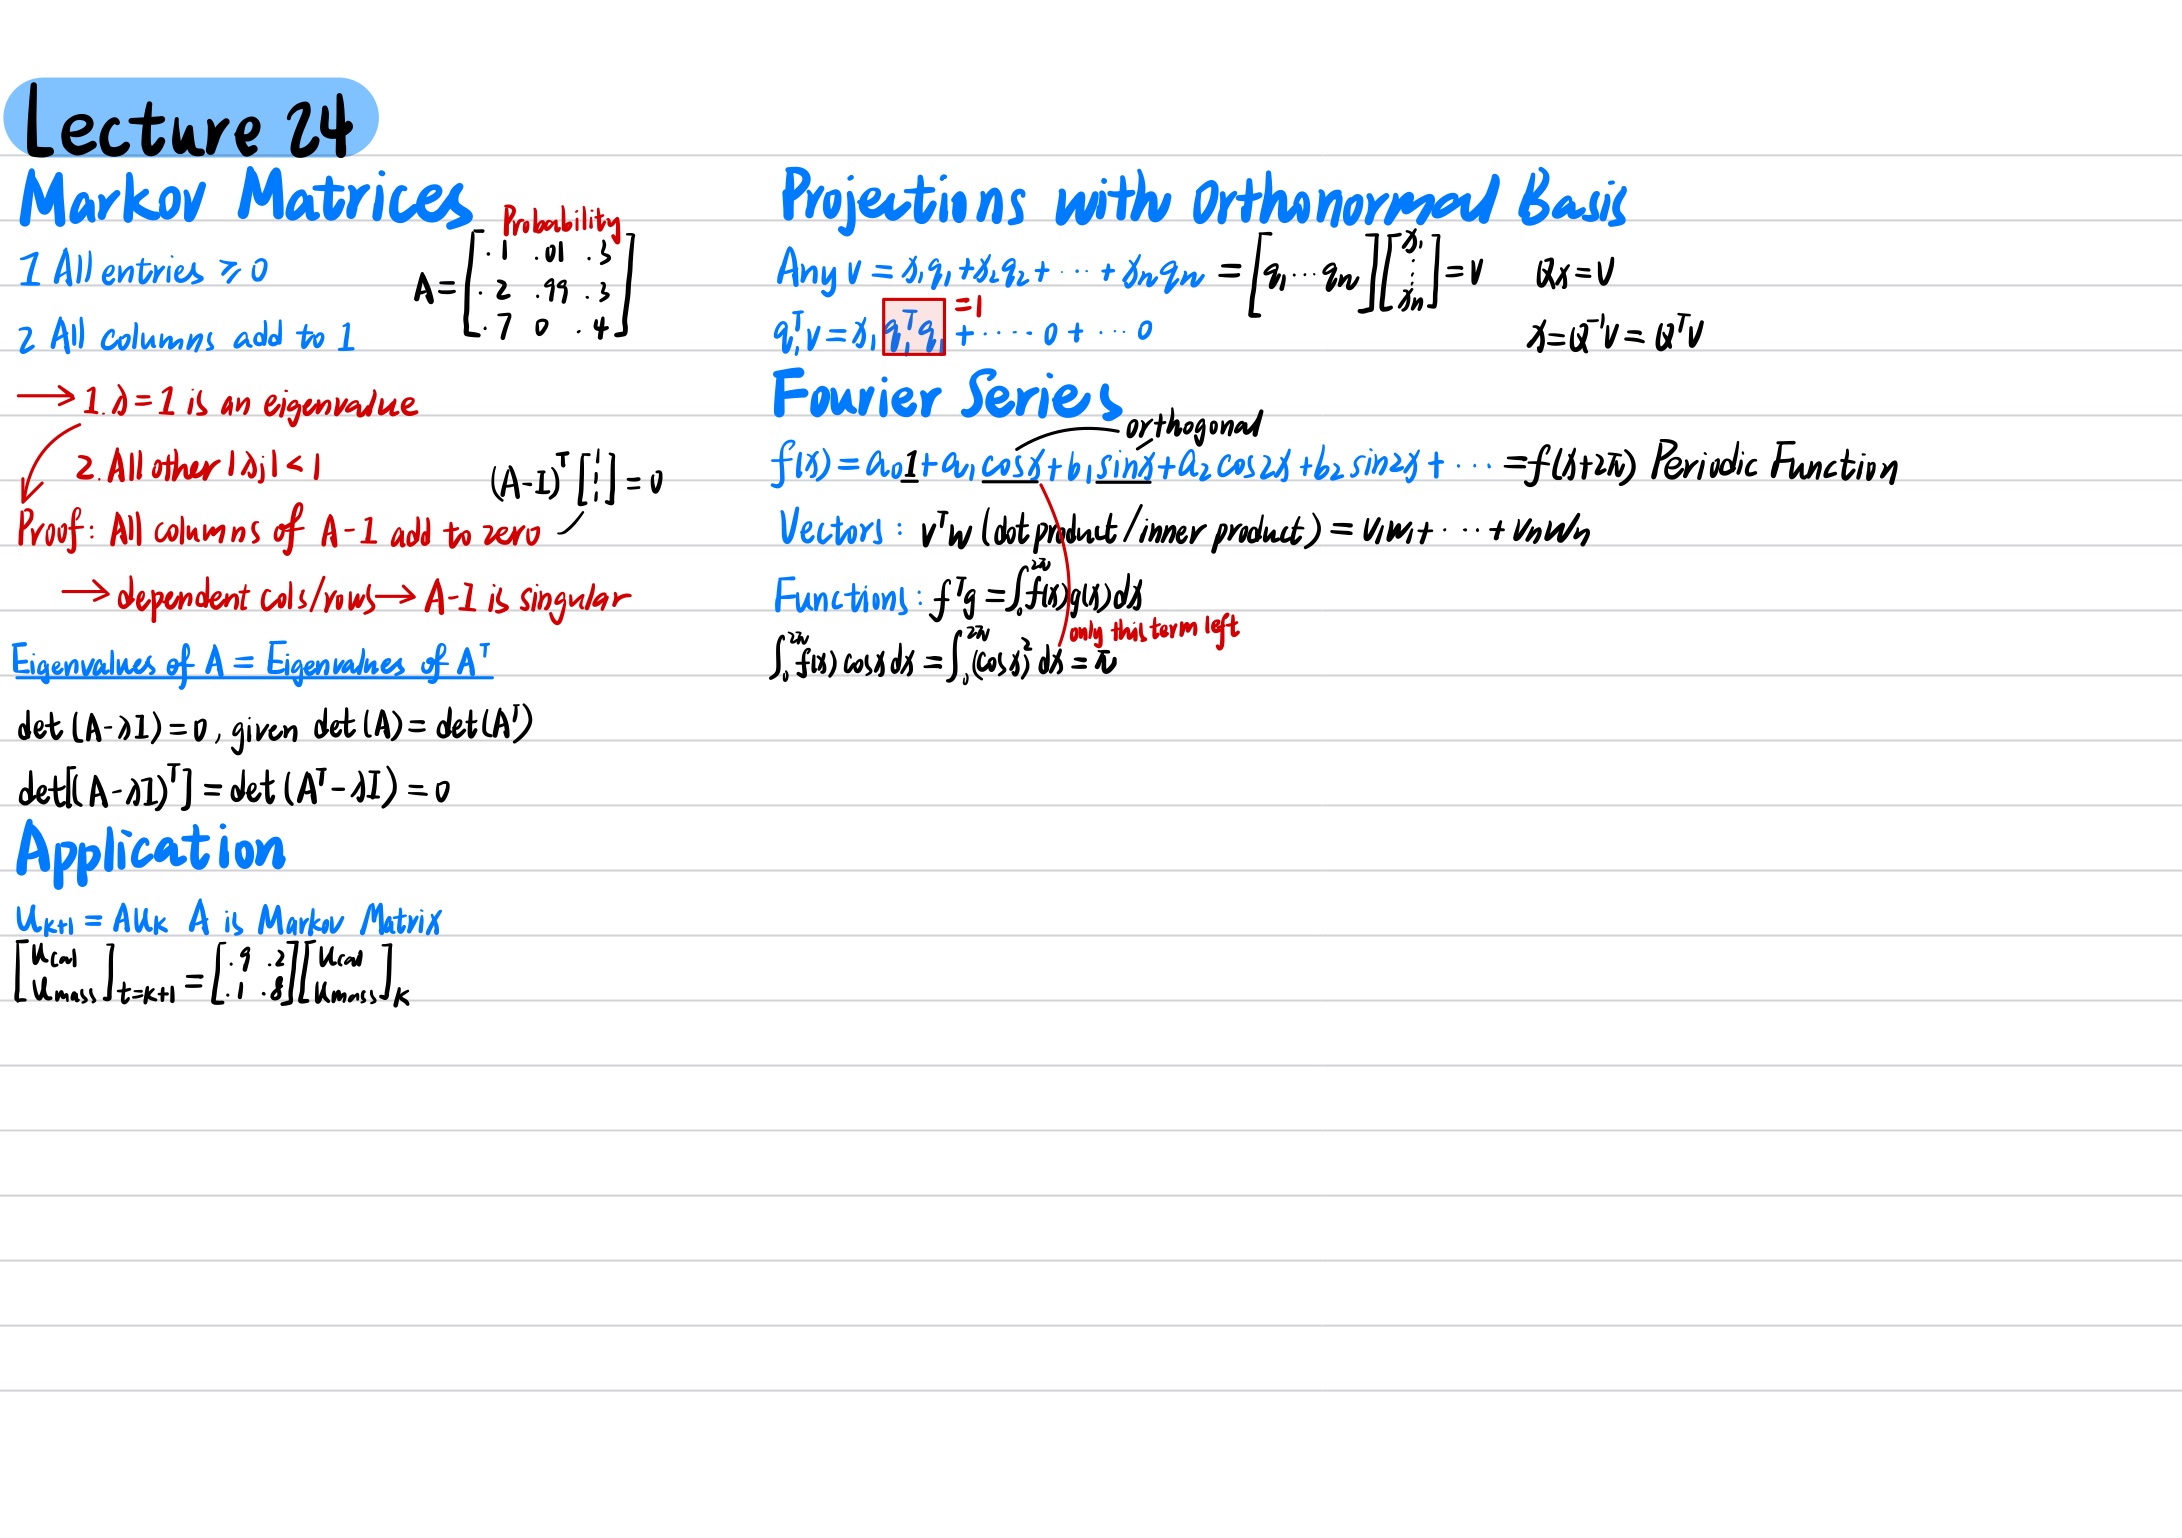 Lecture 24
Markov Matrices
Probability
1 All entries ≥ 0
A = [.1 .01 .3
.2 .99 .3
.7 0 .4]
2 All columns add to 1
→ 1. λ = 1 is an eigenvalue
2. All other |λj| < 1
(A-I)ᵀ [1 1 1] = 0
Proof: All columns of A-1 add to zero
→ dependent cols/rows → A-1 is singular
Eigenvalues of A = Eigenvalues of Aᵀ
det (A-λI) = 0, given det (A) = det (Aᵀ)
det[(A-λI)ᵀ] = det (Aᵀ-λI) = 0
Application
uk+1 = Auk A is Markov Matrix
[ucal
umass]t=k+1 = [.9 .2
.1 .8] [ucal
umass]k
Projections with Orthonormal Basis
Any v = x1q1 + x2q2 + ··· + xnqn = [q1 ··· qn] [x1 ⋮ xn] = v Qx = v
q1ᵀv = x1 q1ᵀq1 + ···· 0 + ··· 0
=1
x = Q⁻¹v = Qᵀv
Fourier Series
orthogonal
f(x) = a0 1 + a1 cosx + b1 sinx + a2 cos2x + b2 sin2x + ··· = f(x+2π) Periodic Function
Vectors: vᵀw (dot product / inner product) = v1w1 + ··· + vnwn
Functions: fᵀg = ∫₀^2π f(x)g(x)dx
only this term left
∫₀^2π f(x) cosx dx = ∫₀^2π (cosx)² dx = π